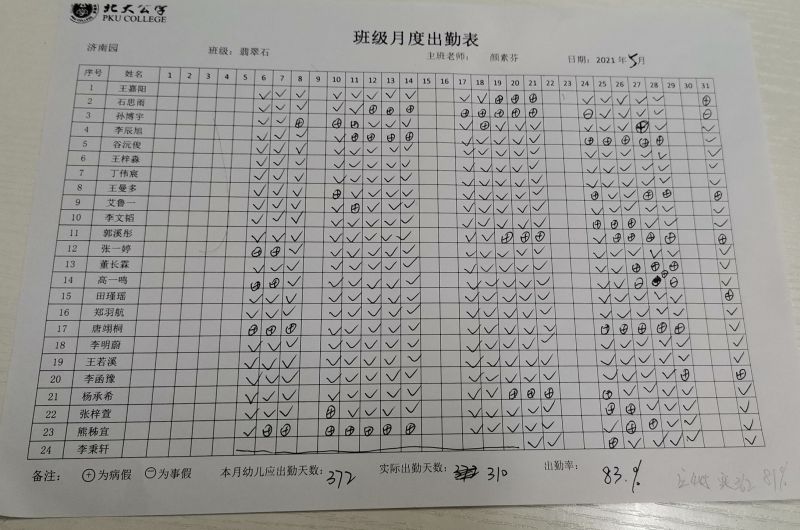 北大公学
PKU COLLEGE
班级月度出勤表
济南园 班级：翡翠石 主班老师： 颜素芬 日期：2021 年5月
序号 姓名 1 2 3 4 5 6 7 8 9 10 11 12 13 14 15 16 17 18 19 20 21 22 23 24 25 26 27 28 29 30 31
1 王嘉阳
2 石思雨
3 孙博宇
4 李辰旭
5 谷沅俊
6 王梓淼
7 丁伟宸
8 王曼多
9 艾鲁一
10 李文韬
11 郭溪彤
12 张一婷
13 董长霖
14 高一鸣
15 田瑾瑶
16 郑羽航
17 唐翊桐
18 李明蔚
19 王若溪
20 李函豫
21 杨承希
22 张梓萱
23 熊秭宜
24 李秉轩
备注： ⊕为病假 ⊖为事假 本月幼儿应出勤天数：372 实际出勤天数：310 出勤率： 83.%